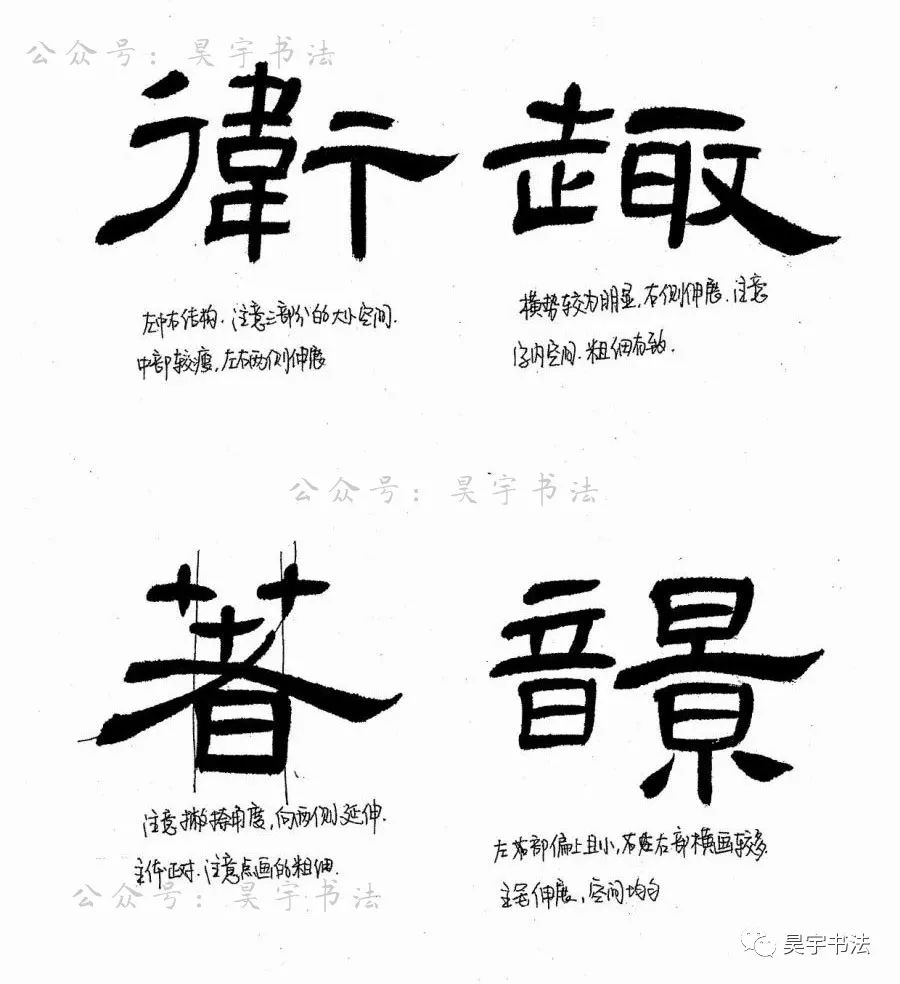 公众号：昊宇书法
衛 趣
左中右结构.注意三部分的大小空间.
中部较瘦,左右两侧伸展
横势较为明显,右侧伸展.注意
字内空间.粗细有致.
公众号：昊宇书法
著
注意撇捺角度,向两侧延伸.
主体正对.注意点画的粗细.
左部偏上且小,右部横画较多.
主笔伸展,空间均匀
公众号：昊宇书法
昊宇书法